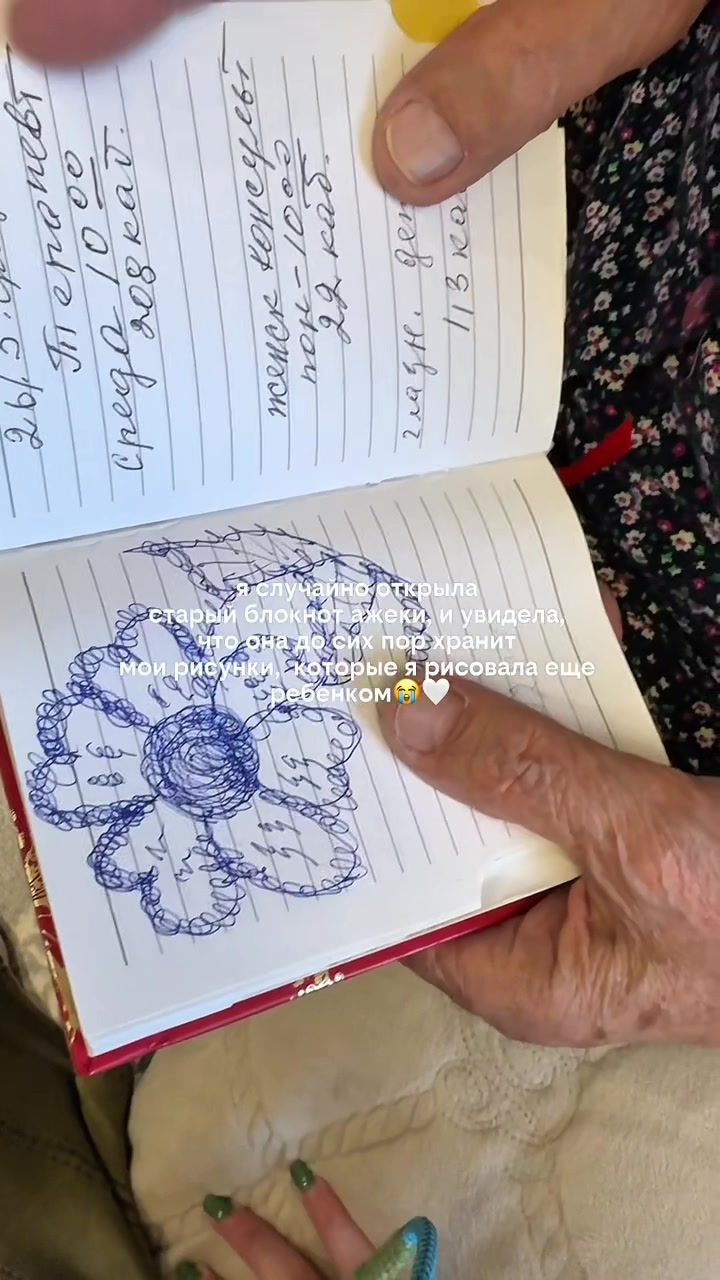 Терапевт
среда 10 00
208 каб.
женск консульт
пон - 10 00
22 каб.
113 ка
я случайно открыла
старый блокнот ажеки, и увидела,
что она до сих пор хранит
мои рисунки, которые я рисовала еще
ребенком😭🤍